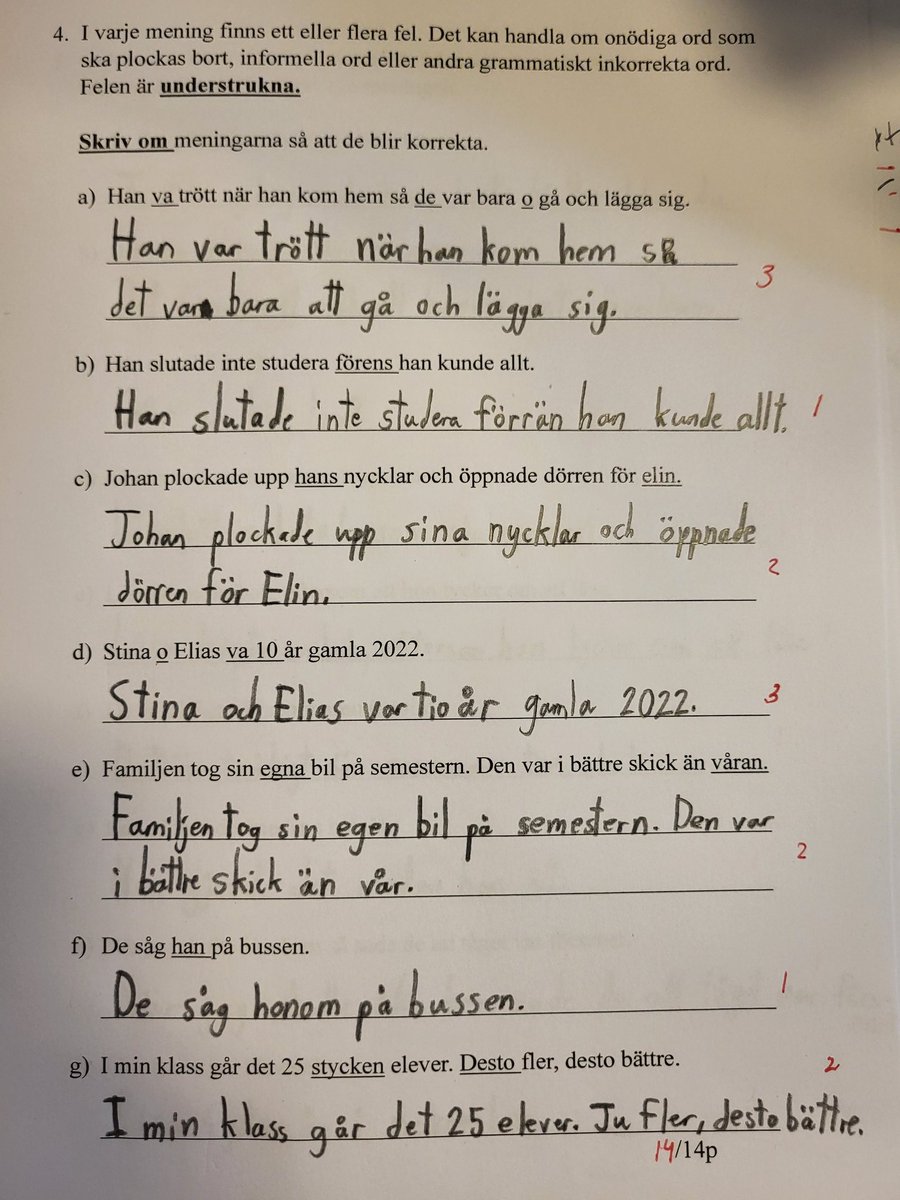 4. I varje mening finns ett eller flera fel. Det kan handla om onödiga ord som
ska plockas bort, informella ord eller andra grammatiskt inkorrekta ord.
Felen är understrukna.
Skriv om meningarna så att de blir korrekta.
a) Han va trött när han kom hem så de var bara o gå och lägga sig.
Han var trött när han kom hem så
det var bara att gå och lägga sig.
3
b) Han slutade inte studera förens han kunde allt.
Han slutade inte studera förrän han kunde allt. 1
c) Johan plockade upp hans nycklar och öppnade dörren för elin.
Johan plockade upp sina nycklar och öppnade
dörren för Elin.
2
d) Stina o Elias va 10 år gamla 2022.
Stina och Elias var tio år gamla 2022. 3
e) Familjen tog sin egna bil på semestern. Den var i bättre skick än våran.
Familjen tog sin egen bil på semestern. Den var
i bättre skick än vår.
2
f) De såg han på bussen.
De såg honom på bussen. 1
g) I min klass går det 25 stycken elever. Desto fler, desto bättre.
2
I min klass går det 25 elever. Ju fler, desto bättre.
14/14p